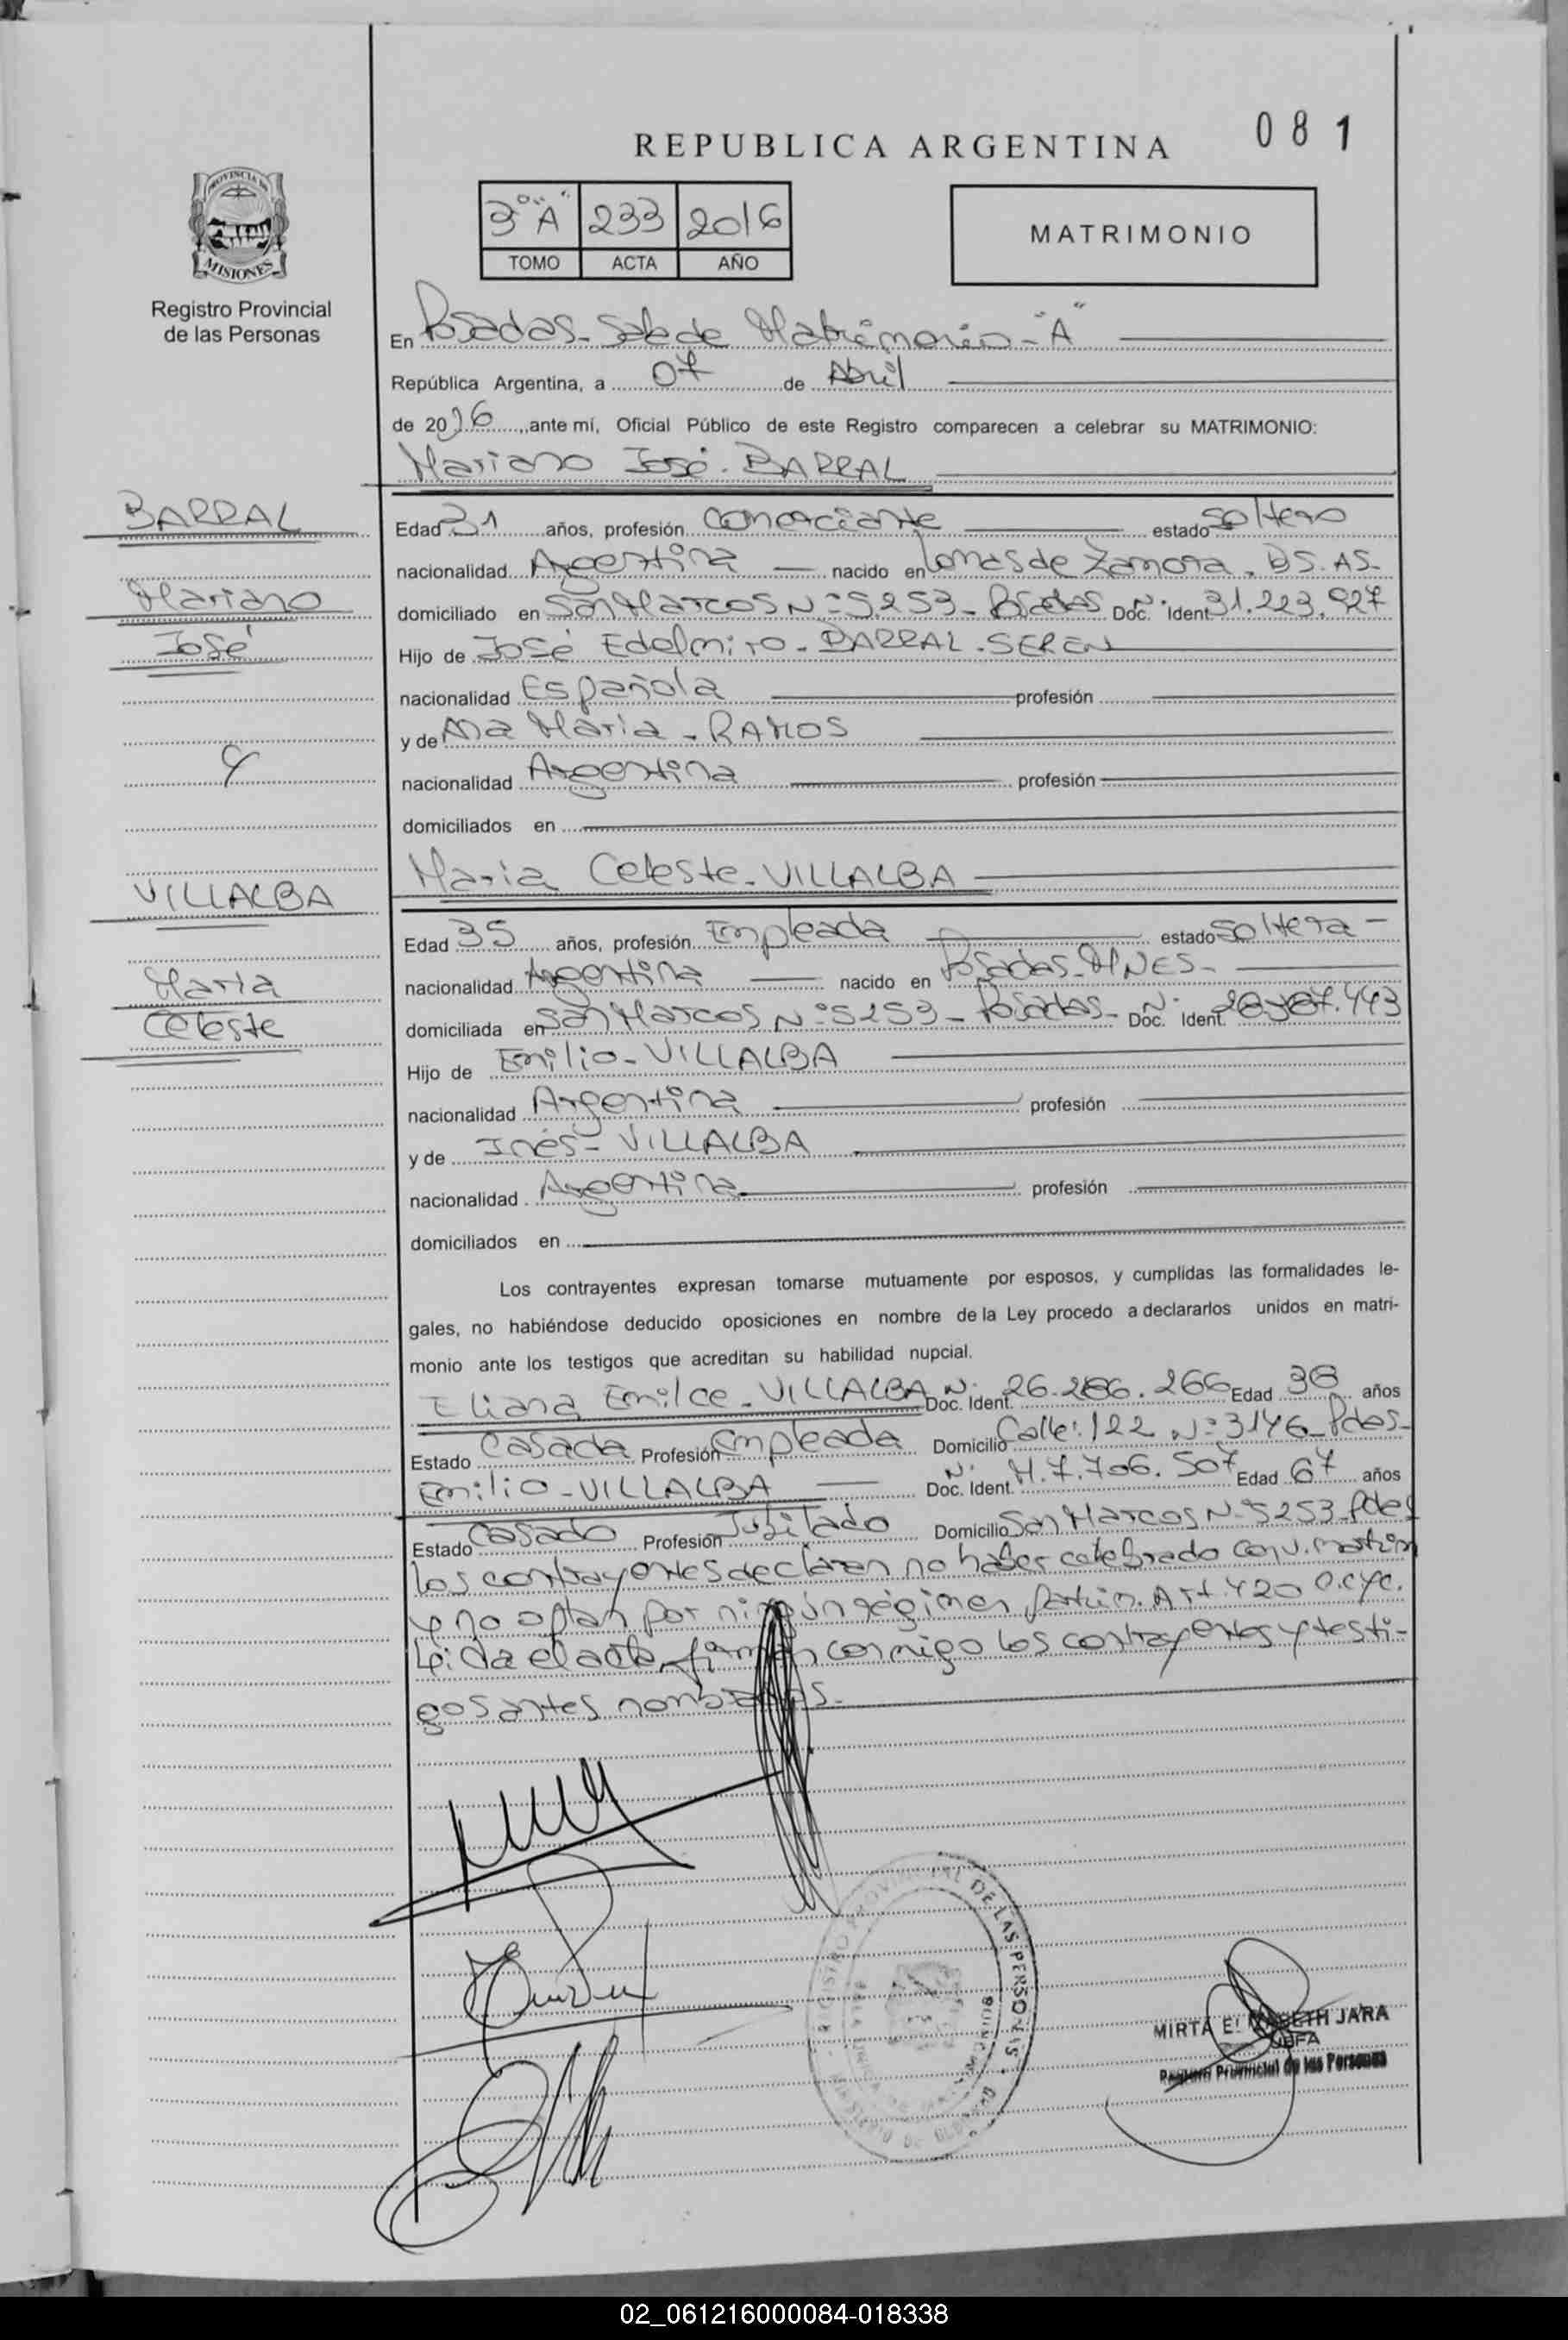 081
REPUBLICA ARGENTINA
3° "A" 233 2016
TOMO ACTA AÑO
MATRIMONIO
PROVINCIA DE
MISIONES
Registro Provincial
de las Personas
En Posadas - Sala de Matrimonio - "A"
República Argentina, a 07 de Abril
de 2016, ante mí, Oficial Público de este Registro comparecen a celebrar su MATRIMONIO:
Mariano José - BARRAL
BARRAL
Mariano
José
Edad 31 años, profesión Comerciante estado soltero
nacionalidad Argentina nacido en Lomas de Zamora - BS. AS.
domiciliado en San Marcos N° 5253 - Posadas Doc. N° Ident. 31.223.927
Hijo de José Edelmiro - BARRAL - SEREN
nacionalidad Española profesión
y de Ana María - RAMOS
y
nacionalidad Argentina profesión
domiciliados en
María Celeste - VILLALBA
VILLALBA
María
Celeste
Edad 35 años, profesión Empleada estado soltera -
nacionalidad Argentina nacido en Posadas - MNES -
domiciliada en San Marcos N° 5253 - Posadas - Doc. N° Ident.
Hijo de Emilio - VILLALBA
nacionalidad Argentina profesión
y de Inés - VILLALBA
nacionalidad Argentina profesión
domiciliados en
Los contrayentes expresan tomarse mutuamente por esposos, y cumplidas las formalidades le-
gales, no habiéndose deducido oposiciones en nombre de la Ley procedo a declararlos unidos en matri-
monio ante los testigos que acreditan su habilidad nupcial.
Eliana Emilce - VILLALBA Doc. N° Ident. 26.286.266 Edad 38 años
Estado Casada Profesión Empleada Domicilio Calle: 122 N° 3146 - Pdas -
Emilio - VILLALBA Doc. N° Ident. M. 7.706.507 Edad 67 años
Estado Casado Profesión Jubilado Domicilio San Marcos N° 5253 - Pdas
Los contrayentes declaran no haber celebrado conv. matrim
y no optan por ningún régimen patrim. Art. 420 C.C y C.
Leida el acta, firman conmigo los contrayentes y testi-
gos antes nombrados.-
REGISTRO PROVINCIAL DE LAS PERSONAS
MIRTA ELIZABETH JARA
JEFA
Registro Provincial de las Personas
02_061216000084-018338